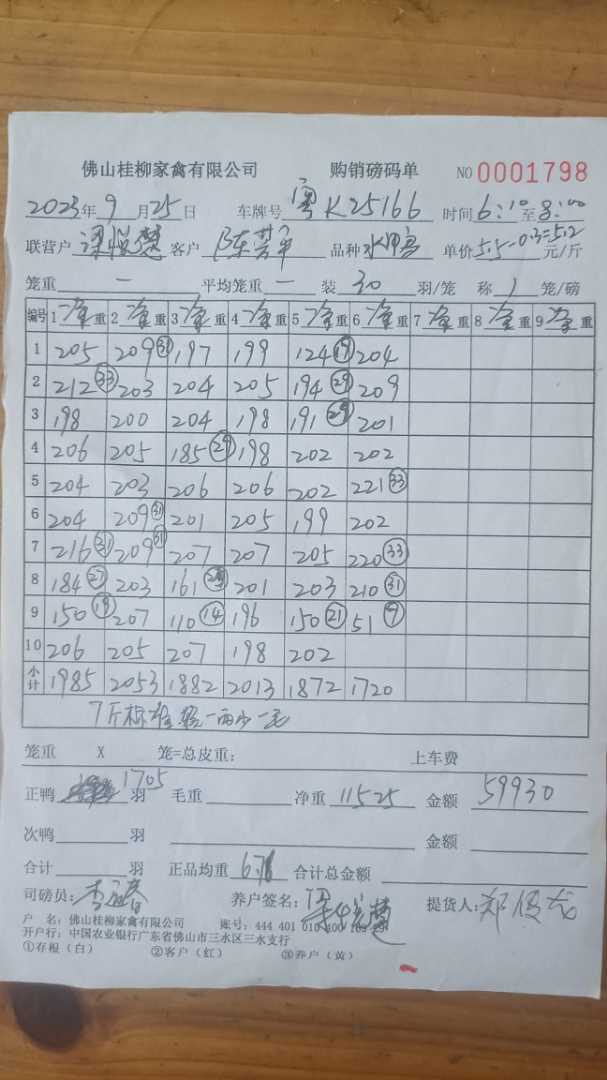 佛山桂柳家禽有限公司 购销磅码单 NO 0001798
2023年 9 月 25 日 车牌号 粤K25166 时间 6:10 至 8:00
联营户 客户 陈芳 品种 水 单价 5.5-0.3=5.2 元/斤
笼重 一 平均笼重 一 装 30 羽/笼 称 1 笼/磅
编号 1 净重 重 2 净重 重 3 净重 重 4 净重 重 5 净重 重 6 净重 重 7 净重 重 8 净重 重 9 净重 重
1 205 209 ㉛ 197 199 124 ⑲ 204
2 212 ㉝ 203 204 205 194 ㉙ 209
3 198 200 204 198 191 ㉙ 201
4 206 205 185 ㉙ 198 202 202
5 204 203 206 206 202 221 ㉝
6 204 209 ㉛ 201 205 199 202
7 216 ㉛ 209 ㉛ 207 207 205 220 ㉝
8 184 ㉗ 203 161 201 203 210 ㉛
9 150 ⑲ 207 110 ⑭ 196 150 ㉑ 51 ⑦
10 206 205 207 198 202
小计 1985 2053 1882 2013 1872 1720
7斤标准 一两 一毛
笼重 X 笼=总皮重: 上车费
正鸭 1705 羽 毛重 净重 11525 金额 59930
次鸭 羽 金额
合计 羽 正品均重 6.76 合计总金额
司磅员: 李 春 养户签名: 提货人: 郑俊龙
户 名: 佛山桂柳家禽有限公司 账号: 444 401 010 400
开户行: 中国农业银行广东省佛山市三水区三水支行
①存根(白) ②客户(红) ③养户(黄)